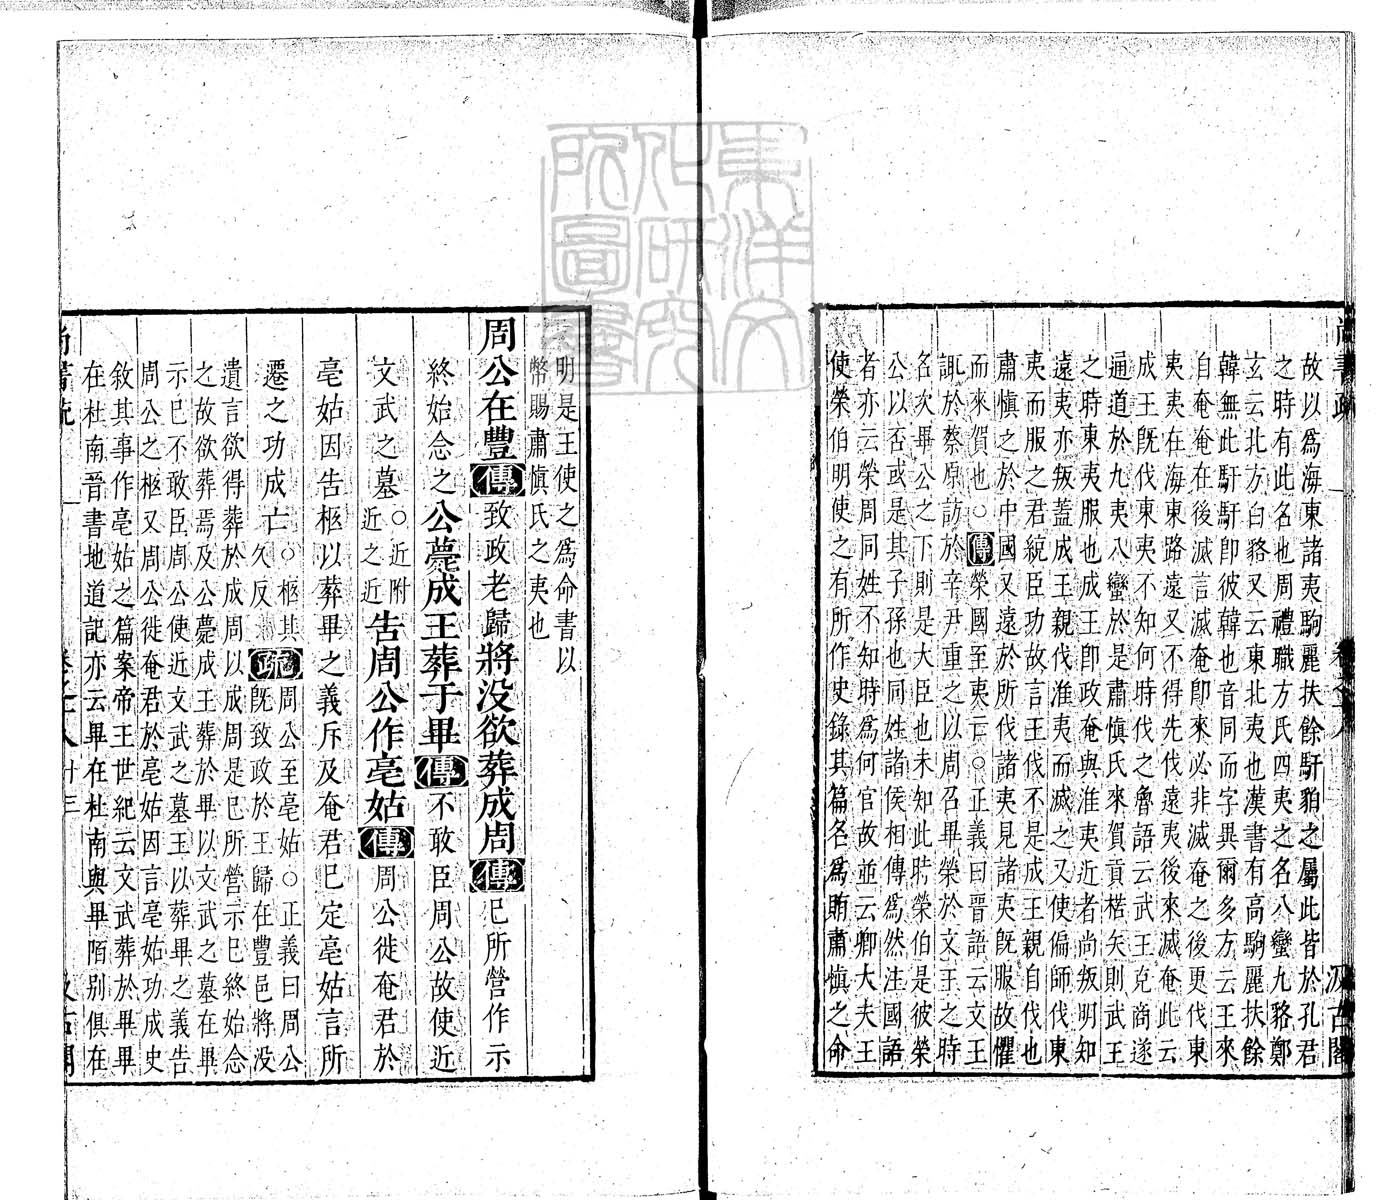 尚書疏 卷之十八 汲古閣
故以爲海東諸夷駒麗扶餘馯貊之屬此皆於孔君
之時有此名也周禮職方氏四夷之名八蠻九貉鄭
玄云北方曰貉又云東北夷也漢書有高駒麗扶餘
韓無此馯馯卽彼韓也音同而字異爾多方云王來
自奄奄在後滅言滅奄卽來必非滅奄之後更伐東
夷夷在海東路遠又不得先伐遠夷後來滅奄此云
成王旣伐東夷不知何時伐之魯語云武王克商遂
通道於九夷八蠻於是肅愼氏來賀貢楛矢則武王
之時東夷服也成王卽政奄與淮夷近者尚叛明知
遠夷亦叛蓋成王親伐淮夷而滅之又使偏師伐東
夷而服之君統臣功故言王伐不是成王親自伐也
肅愼之於中國又遠於所伐諸夷見諸夷旣服故懼
而來賀也○傳榮國至夷亡○正義曰晉語云文王
諏於蔡原訪於辛尹重之以周召畢榮於文王之時
名次畢公之下則是大臣也未知此時榮伯是彼榮
公以否或是其子孫也同姓諸侯相傳爲然注國語
者亦云榮周同姓不知時爲何官故並云卿大夫王
使榮伯明使之有所作史錄其篇名爲賄肅愼之命
明是王使之爲命書以
幣賜肅愼氏之夷也
周公在豐傳致政老歸將没欲葬成周傳已所營作示
終始念之公薨成王葬于畢傳不敢臣周公故使近
文武之墓○近附近之近告周公作亳姑傳周公徙奄君於
亳姑因告柩以葬畢之義斥及奄君已定亳姑言所
遷之功成亡○柩其久反疏周公至亳姑○正義曰周公
旣致政於王歸在豐邑將没
遺言欲得葬於成周以成周是已所營示已終始念
之故欲葬焉及公薨成王葬於畢以文武之墓在畢
示已不敢臣周公使近文武之墓王以葬畢之義告
周公之柩又周公徙奄君於亳姑因言亳姑功成史
敘其事作亳姑之篇案帝王世紀云文武葬於畢畢
在杜南晉書地道記亦云畢在杜南與畢陌别俱在
尚書疏 卷之十八 十三 汲古閣
東洋文化研究所圖書